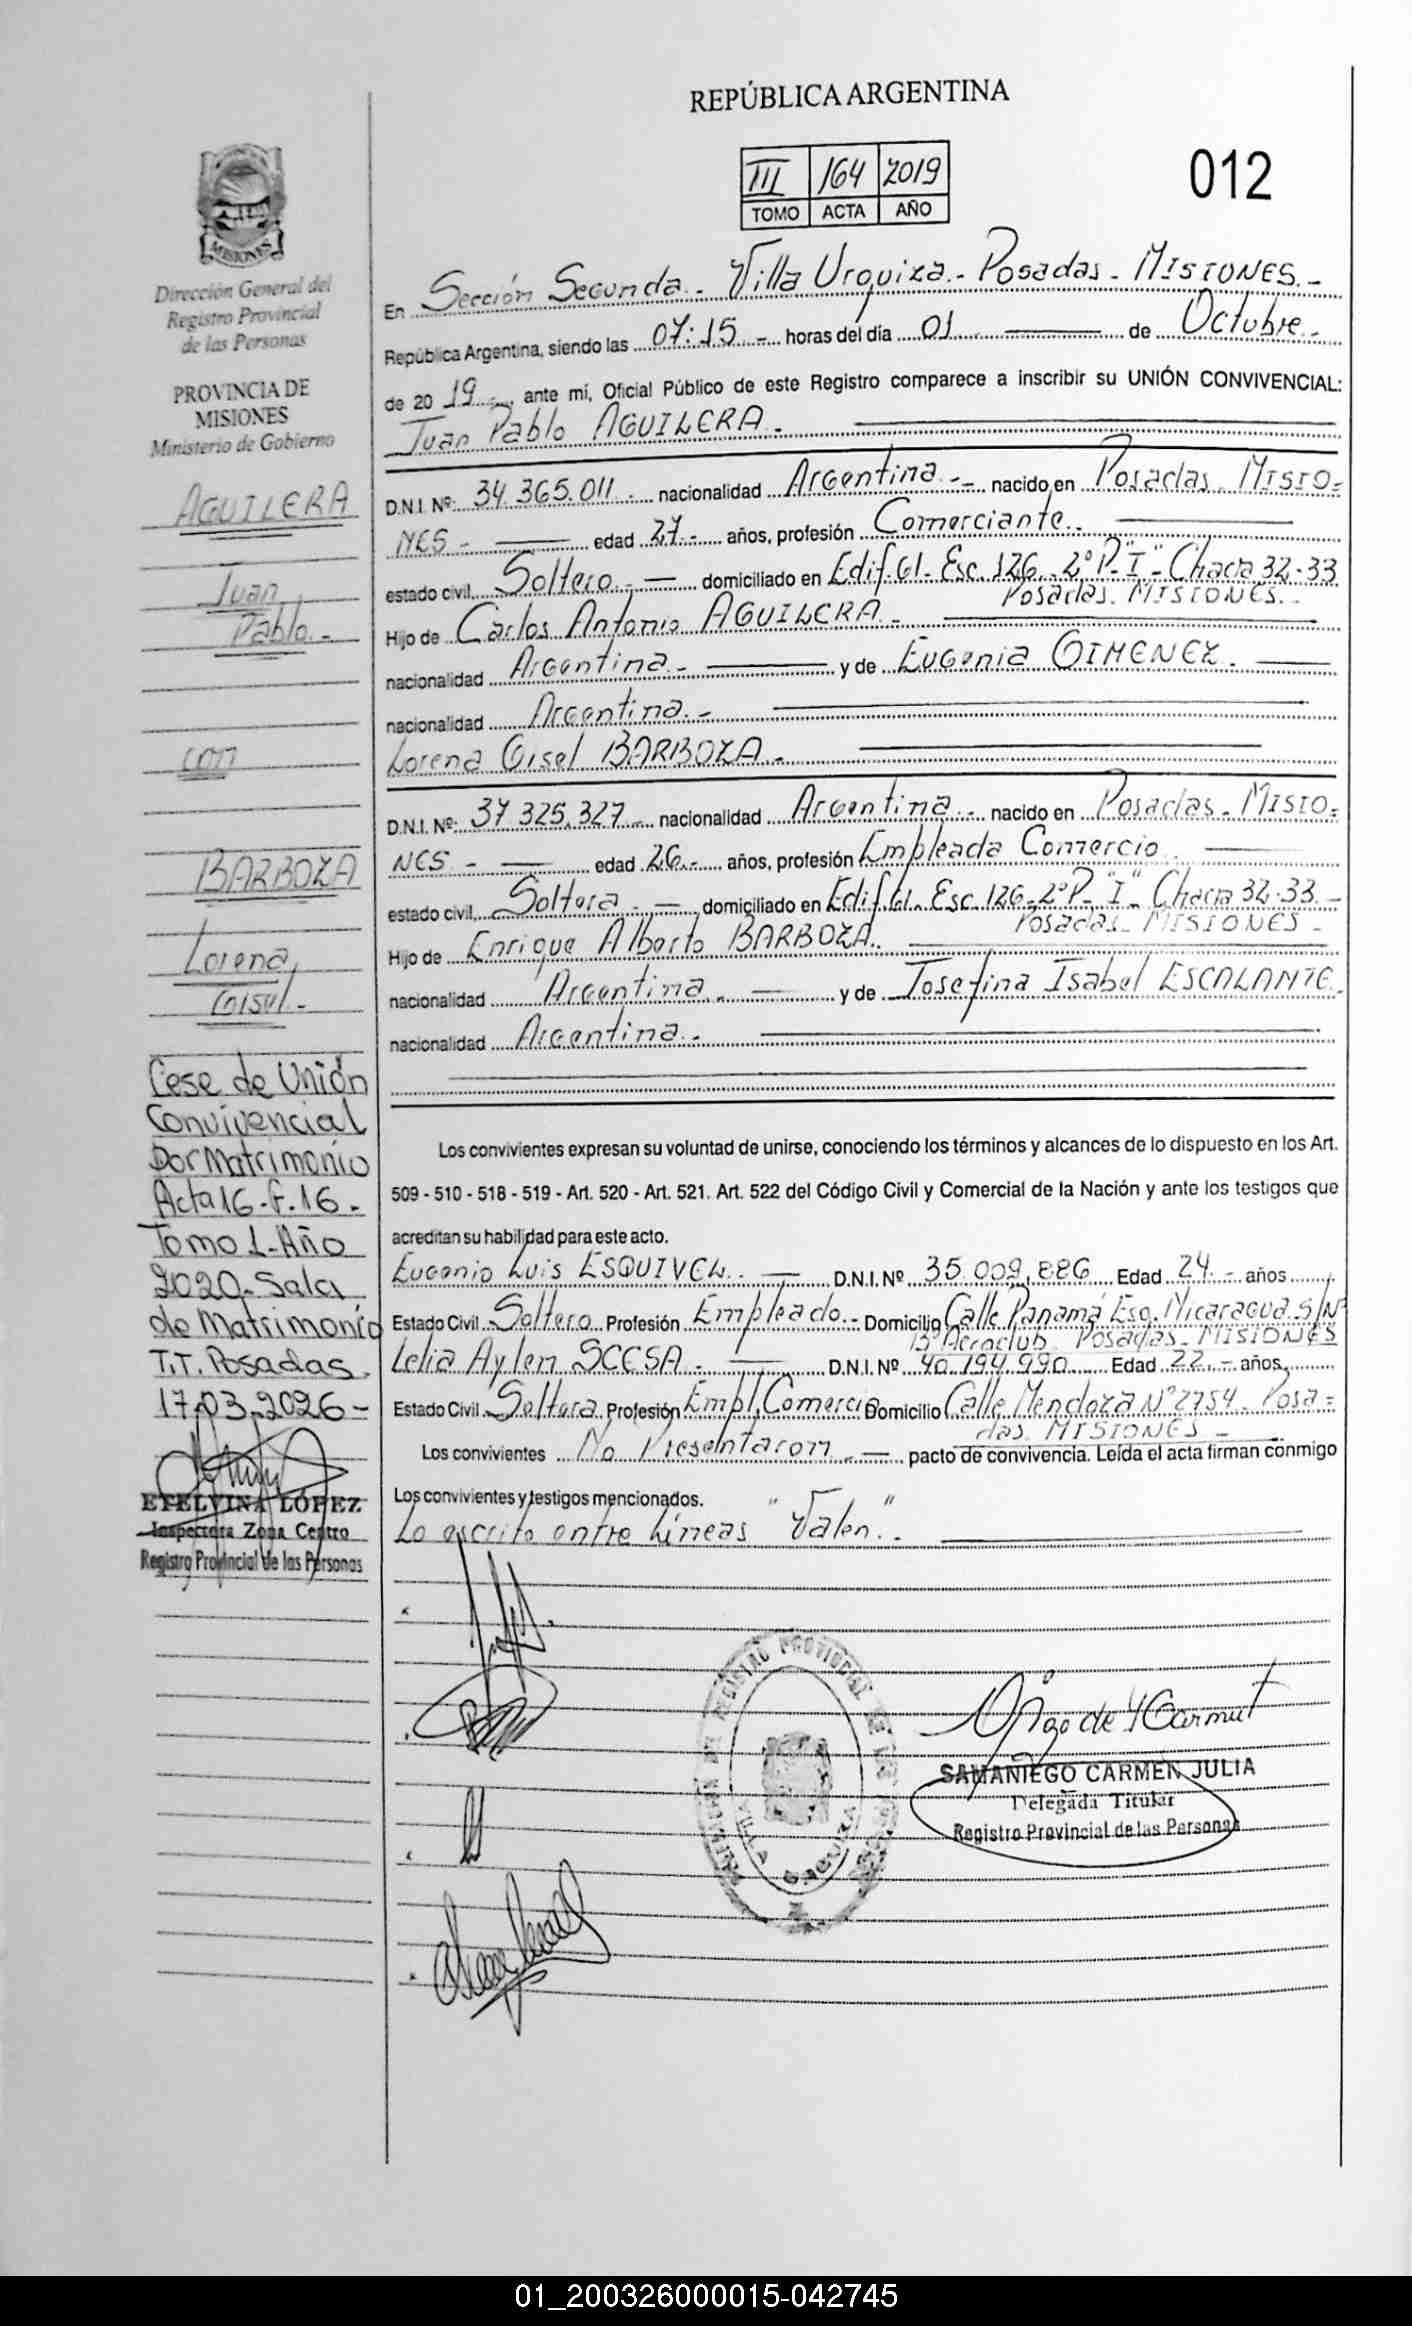 REPÚBLICA ARGENTINA
012
III 164 2019
TOMO ACTA AÑO
MISIONES
Dirección General del
Registro Provincial
de las Personas
PROVINCIA DE
MISIONES
Ministerio de Gobierno
AGUILERA
Juan
Pablo.-
con
BARBOZA
Lorena
Gisel.-
Cese de Unión
Convivencial
Por Matrimonio
Acta 16-F.16-
Tomo 1-Año
2020-Sala
de Matrimonio
T.T. Posadas.
17,03,2026-
ETELVINA LÓPEZ
Inspectora Zona Centro
Registro Provincial de las Personas
En Sección Segunda.- Villa Urquiza.- Posadas.- MISIONES.-
República Argentina, siendo las 07:15.- horas del día 01 de Octubre.-
de 20 19.-, ante mí, Oficial Público de este Registro comparece a inscribir su UNIÓN CONVIVENCIAL:
Juan Pablo AGUILERA.-
D.N.I. Nº: 34.365.011.- nacionalidad Argentina.-- nacido en Posadas. MISIO-
NES.- edad 27.- años, profesión Comerciante.-
estado civil Soltero.- domiciliado en Edif.61- Esc.126. 2º P-"I"- Chacra 32-33
Posadas. MISIONES.-
Hijo de Carlos Antonio AGUILERA.-
nacionalidad Argentina.- y de Eugenia GIMENEZ.
nacionalidad Argentina.-
Lorena Gisel BARBOZA.-
D.N.I. Nº: 37.325.327.- nacionalidad Argentina.- nacido en Posadas.- MISIO-
NES.- edad 26.- años, profesión Empleada Comercio.
estado civil Soltera.- domiciliado en Edif.61.- Esc.126-2ºP-"I"- Chacra 32-33.-
Posadas- MISIONES-
Hijo de Enrique Alberto BARBOZA.
nacionalidad Argentina.- y de Josefina Isabel ESCALANTE.
nacionalidad Argentina.-
Los convivientes expresan su voluntad de unirse, conociendo los términos y alcances de lo dispuesto en los Art.
509 - 510 - 518 - 519 - Art. 520 - Art. 521. Art. 522 del Código Civil y Comercial de la Nación y ante los testigos que
acreditan su habilidad para este acto.
Eugenio Luis ESQUIVEL.- D.N.I. Nº 35.009.886 Edad 24.- años
Estado Civil Soltero Profesión Empleado.- Domicilio Calle Panamá Esq. Nicaragua S/Nº
Bº Aeroclub Posadas- MISIONES
Lelia Aylen SCESA.- D.N.I. Nº 40.194.990 Edad 22.- años
Estado Civil Soltera Profesión Empl. Comercio Domicilio Calle Mendoza Nº 2754. Posa-
das. MISIONES-
Los convivientes No Presentaron.- pacto de convivencia. Leída el acta firman conmigo
Los convivientes y testigos mencionados.
Lo escrito entre líneas "Valen".-
REGISTRO PROVINCIAL DE LAS
VILLA URQUIZA
SAMANIEGO CARMEN JULIA
Delegada Titular
Registro Provincial de las Personas
01_200326000015-042745